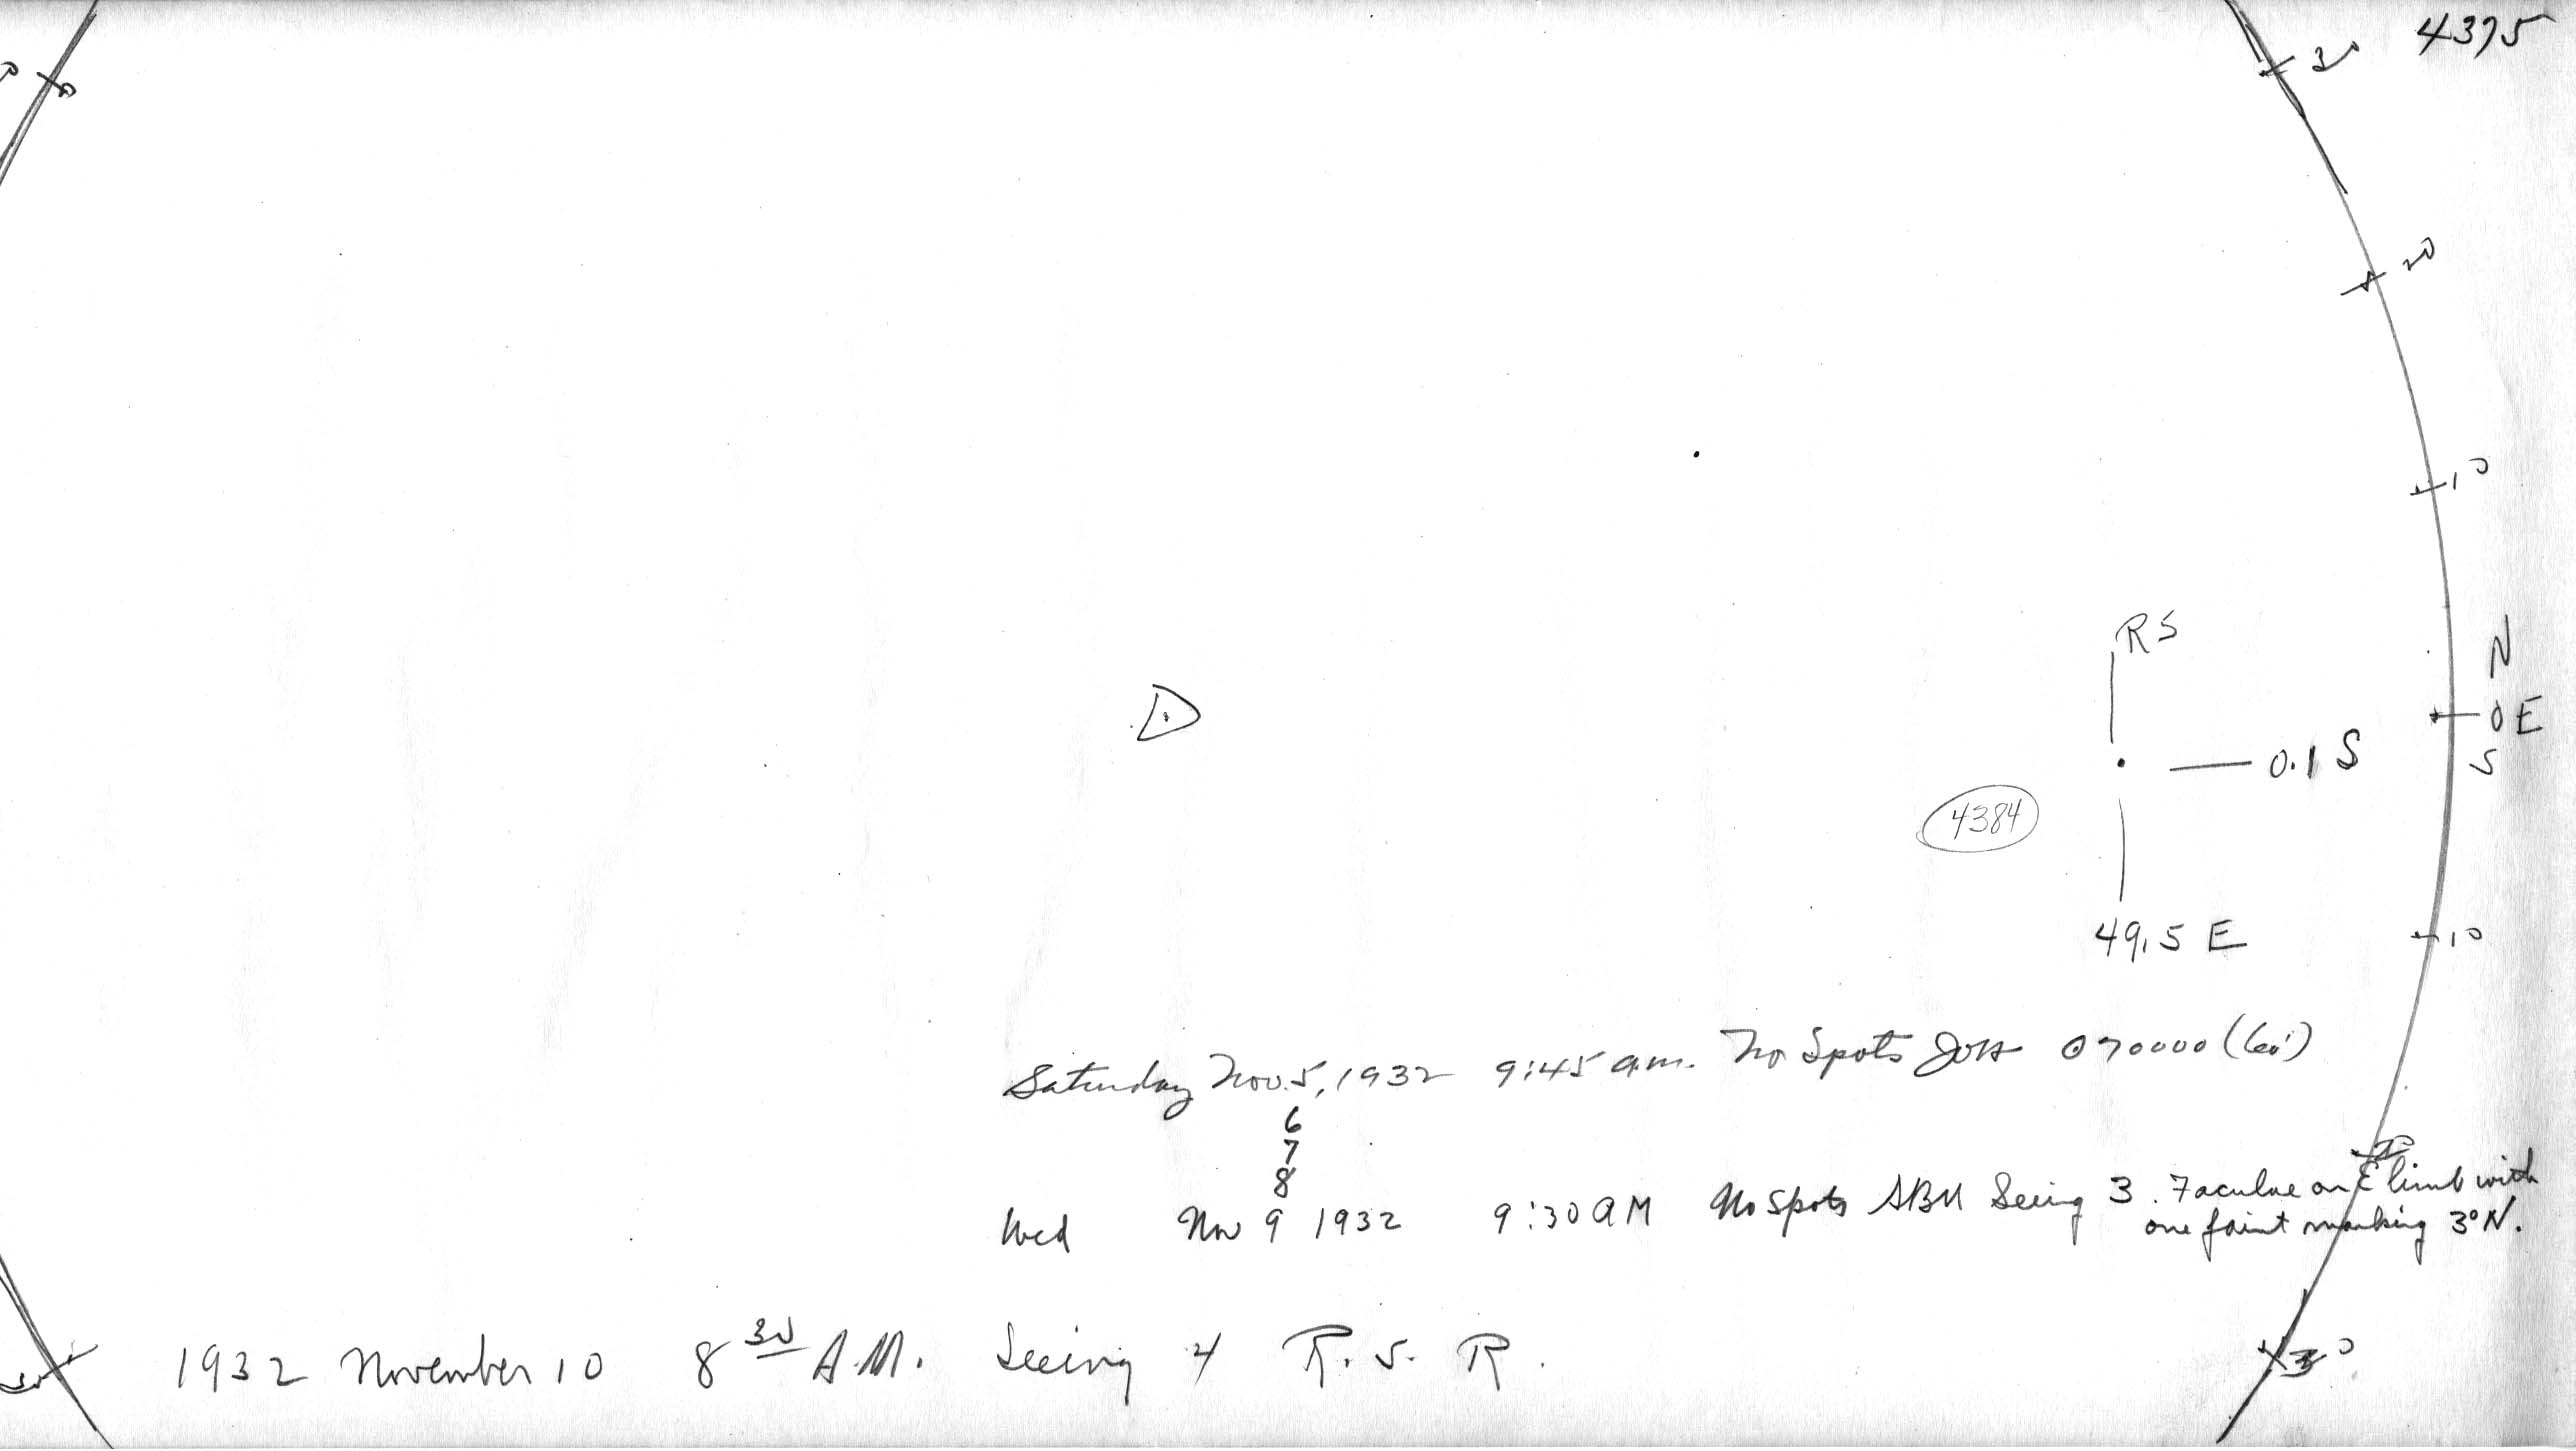 4375
30
20
10
N
0 E
S
R5
0.1 S
4384
49.5 E
10
Saturday Nov. 5, 1932 9:45 a.m. No Spots ⊙70000 (60')
6
7
8
20
Wed Nov 9 1932 9:30 AM No Spots Seeing 3. Faculae on E limb with
one faint marking 3° N.
1932 November 10 8 30 A.M. Seeing 4 R. S. R.
30
30